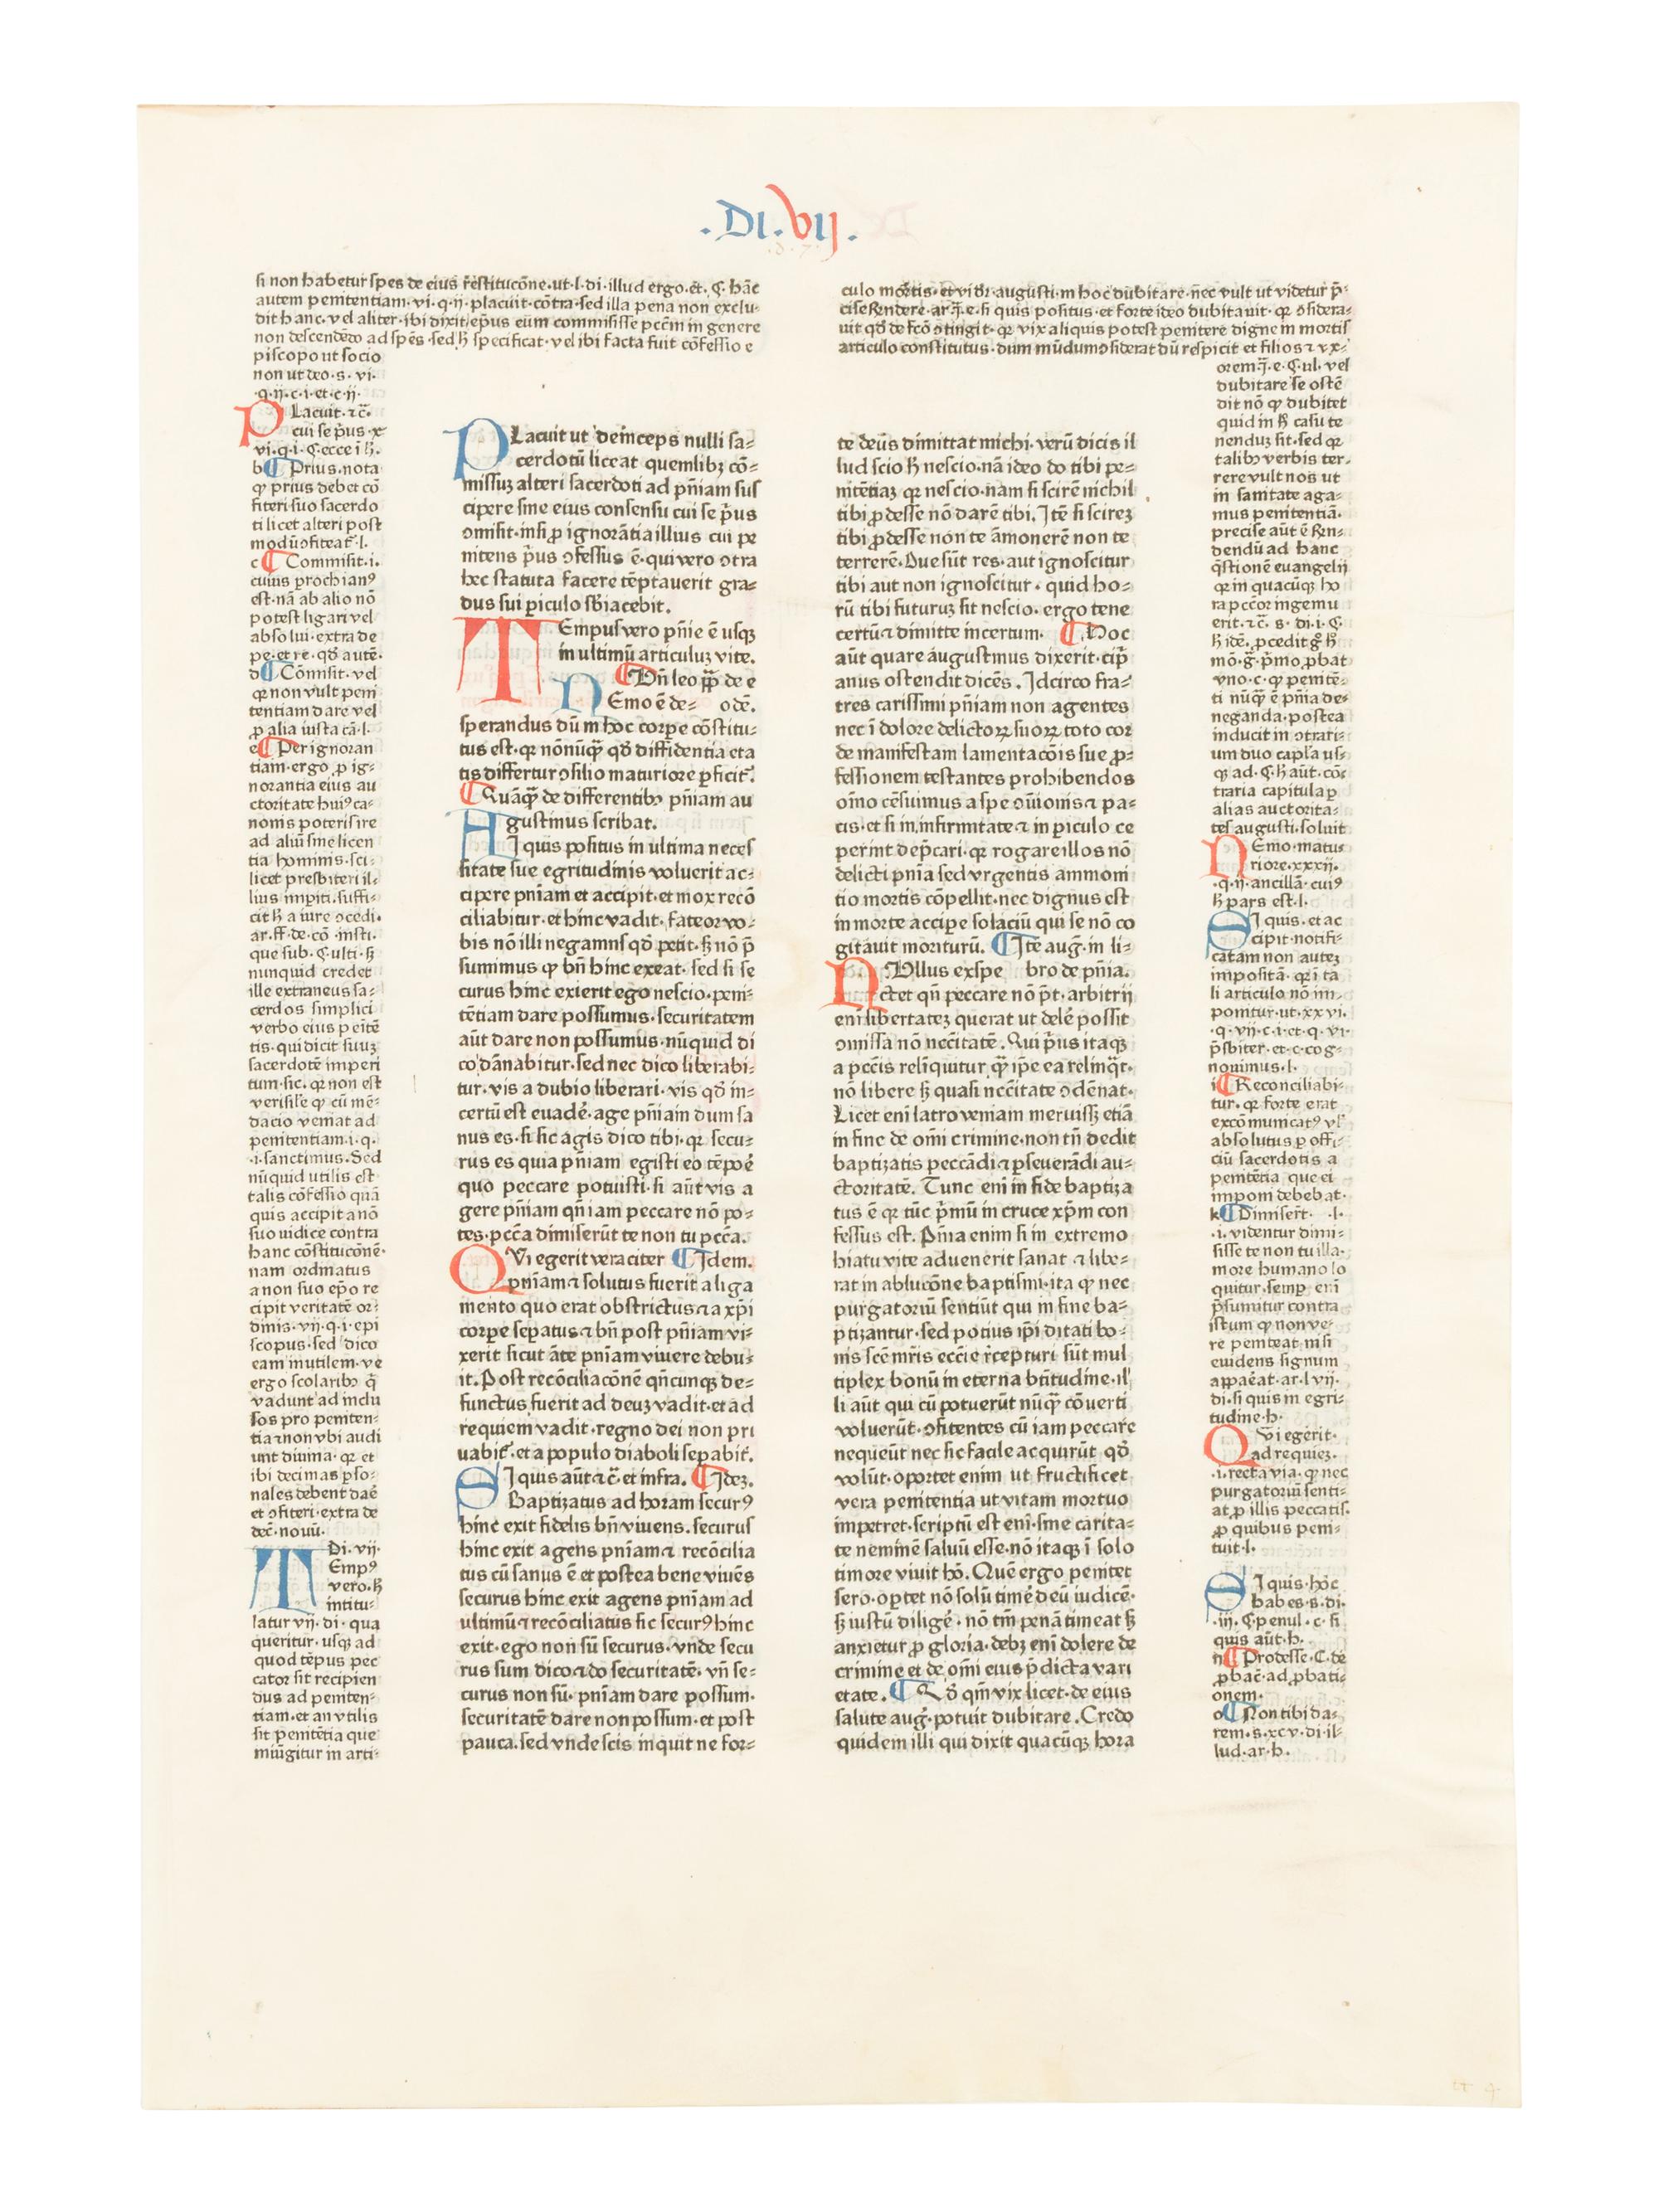 .DI.VIJ.
si non habetur spes de eius restitucōne.ut.l.di.illud ergo.et.¶.hāc
autem penitentiam.vi.q.ij.placuit.cōtra.sed illa pena non exclu-
dit hanc.vel aliter.ibi dixit ep̄us eum commisisse pcc̄m in genere
non descendēdo ad spēs.sed h̄ specificat.vel ibi facta fuit cōfessio e
piscopo ut socio
non ut deo.s.vi.
.q.ij.c.i.et.c.ij.
PLacuit.⁊c̄.
cui se p̄us.x-
vi.q.i.¶.ecce i h̄.
b¶Prius.nota
ꝙ prius debet cō
fiteri suo sacerdo
ti licet alteri post
modū ↄfiteat̄.l.
c¶Commisit.i.
cuius prochianꝰ
est.nā ab alio nō
potest ligari vel
absolui.extra de
pe.et re.qd̄ autē.
d¶.Cōmisit.vel
qꝛ non vult peni
tentiam dare vel
ꝓ alia iusta cā.l.
e¶Per ignoran
tiam.ergo ꝓ ig-
norantia eius au
ctoritate huiꝰ ca-
nonis poterit ire
ad aliū sine licen
tia hominis.sci-
licet presbiteri il-
lius impiti.suffi-
cit h̄ a iure ↄcedi.
ar.ff.de.cō.insti.
que sub.¶.ulti.sꝫ
nunquid credet
ille extraneus sa-
cerdos simplici
verbo eius peitē
tis.qui dicit suuꝫ
sacerdotē imperi
tum.sic.qꝛ non est
verisile ꝙ cū mē-
dacio veniat ad
penitentiam.i.q.
.i.sanctimus.Sed
nūquid utilis est
talis cōfessio quā
quis accipit a nō
suo iudice contra
hanc cōstitucōnē.
nam ordinatus
a non suo ep̄o re
cipit veritatē or-
dinis.vij.q.i.epi
scopus.sed dico
eam inutilem.ve
ergo scolaribꝰ q̄
vadunt ad inclu
sos pro peniten-
tia ⁊ non vbi audi
unt diuina.qꝛ et
ibi decimas pso-
nales debent daē
et ↄfiteri.extra de
dec̄.nouū.
Di.vij.
TEmpꝰ
vero.h̄
intitu-
latur vij.di.qua
queritur.usqꝫ ad
quod tēpus pec
cator sit recipien
dus ad peniten-
tiam.et an vtilis
sit penitētia que
miūgitur in arti-
PLacuit ut deinceps nulli sa-
cerdotū liceat quemlibꝫ cō-
missuꝫ alteri sacerdoti ad pn̄iam sus
cipere sine eius consensu cui se p̄us
ↄmisit.nisi ꝓ ignorātia illius cui pe
nitens p̄us ↄfessus ē.qui vero ↄtra
hec statuta facere tēptauerit gra-
dus sui piculo sb̄iacebit.
TEmpus vero pn̄ie ē usqꝫ
in ultimū articuluꝫ vite.
¶Vn̄ leo pp̄ de e
NEmo ē de- odē.
sperandus dū in hoc corpe cōstitu-
tus est.qꝛ nōnūqꝫ qd̄ diffidentia eta
tis differtur ↄsilio maturiore pficit̄.
¶Quāqꝫ de differentibꝰ pn̄iam au
gustinus scribat.
SI quis positus in ultima neces
sitate sue egritudinis voluerit ac-
cipere pn̄iam et accipit.et mox recō
ciliabitur.et hinc vadit.fateor vo-
bis nō illi negamus qd̄ petit.sꝫ nō p̄
sumimus ꝙ bn̄ hinc exeat.sed si se
curus hinc exierit ego nescio.peni-
tētiam dare possumus.securitatem
aūt dare non possumus.nūquid di
co dānabitur.sed nec dico liberabi-
tur.vis a dubio liberari.vis qd̄ in-
certū est euadē.age pn̄iam dum sa
nus es.si sic agis dico tibi.qꝛ secu-
rus es quia pn̄iam egisti eo tēpoē
quo peccare potuisti.si aūt vis a
gere pn̄iam qn̄ iam peccare nō po-
tes.pcc̄a dimiserūt te non tu pcc̄a.
QVi egerit veraciter ¶Idem.
pn̄iam ⁊ solutus fuerit a liga
mento quo erat obstrictus ⁊ a xp̄i
corpe sepatus ⁊ bn̄ post pn̄iam vi-
xerit sicut āte pn̄iam viuere debu-
it.Post recōciliacōnē qn̄cunqꝫ de-
functus fuerit ad deuꝫ vadit.et ad
requiem vadit.regno dei non pri
uabit̄.et a populo diaboli sepabit̄.
SI quis aūt ⁊c̄.et infra. ¶Ideꝫ.
Baptizatus ad horam securꝰ
hinc exit fidelis bn̄ viuens.securus
hinc exit agens pn̄iam ⁊ recōcilia
tus cū sanus ē et postea bene viuēs
securus hinc exit agens pn̄iam ad
ultimū ⁊ recōciliatus sic securꝰ hinc
exit.ego non sū securus.vnde secu
rus sum dico ⁊ do securitatē.vn̄ se-
curus non sū.pn̄iam dare possum.
securitatē dare non possum.et post
pauca.sed vnde scis inquit ne for-
te deus dimittat michi.verū dicis il
lud scio h̄ nescio.nā ideo do tibi pe-
nitētiaꝫ qꝛ nescio.nam si scirē nichil
tibi ꝓdesse nō darē tibi.Itē si scireꝫ
tibi ꝓdesse non te āmonerē non te
terrerē.Due sūt res.aut ignoscitur
tibi aut non ignoscitur.quid ho-
rū tibi futuruꝫ sit nescio.ergo tene
certū ⁊ dimitte incertum. ¶Hoc
aūt quare augustinus dixerit.cip̄
anus ostendit dicēs.Idcirco fra-
tres carissimi pn̄iam non agentes
nec ī dolore delictoꝝ suoꝝ toto cor
de manifestam lamentacōis sue ꝓ-
fessionem testantes prohibendos
oīno cēsuimus a spe ↄ̄ionis ⁊ pa-
cis.et si in infirmitate ⁊ in piculo ce
perint dep̄cari.qꝛ rogare illos nō
delicti pn̄ia sed vrgentis ammoni
tio mortis cōpellit.nec dignus est
in morte accipe solaciū qui se nō co
gitauit moriturū. ¶Itē auḡ.in li-
NVllus exspe bro de pn̄ia.
ctet qn̄ peccare nō p̄t.arbitrij
enī libertateꝫ querat ut delē possit
ↄmissa nō nēcitate.Qui p̄us itaqꝫ
a pccīs relīquitur qꝫ ip̄e ea relinqͣt.
nō libere sꝫ quasi nēcitate ↄdēnat.
Licet enī latro veniam meruissꝫ etiā
in fine de om̄i crimine.non tn̄ dedit
baptizatis peccādi ⁊ pseuerādi au-
ctoritatē. Tunc enī in fide baptiza
tus ē qꝛ tūc p̄mū in cruce xp̄m con
fessus est.Pn̄ia enim si in extremo
hiatu vite aduenerit sanat ⁊ libe-
rat in ablucōne baptismi.ita ꝙ nec
purgatoriū sentiūt qui in fine ba-
ptizantur.sed potius ip̄i ditati bo-
nis sc̄e mr̄is ecc̄ie r̄cepturi sūt mul
tiplex bonū in eterna btītudine.il
li aūt qui cū potuerūt nūqꝫ cōuerti
voluerūt.ↄfitentes cū iam peccare
nequeūt nec sic facile acquirūt qd̄
volūt.oportet enim ut fructificet
vera penitentia ut vitam mortuo
impetret.scriptū est enī.sine carita-
te neminē saluū esse.nō itaqꝫ ī solo
timore viuit hō.Quē ergo penitet
sero.optet nō solū timē deū iudicē.
sꝫ iustū diligē.nō tm̄ penā timeat sꝫ
anxietur ꝓ gloria.debꝫ enī dolere de
crimine et de om̄i eius p̄dicta vari
etate. ¶Qd̄ qm̄ vix licet.de eius
salute auḡ.potuit dubitare.Credo
quidem illi qui dixit quacūqꝫ hora
culo mortis.et vidr̄ augusti.in hoc dubitare.nec vult ut videtur p̄-
cise respondere.ar.j̄.e.si quis positus.et forte ideo dubitauit.qꝛ ↄsidera-
uit qd̄ de fc̄o ↄtingit.qꝛ vix aliquis potest penitere digne in mortis
articulo constitutus.dum mūdum ↄsiderat dū respicit et filios ⁊ vx-
orem.j̄.e.¶.ul.vel
dubitare se ostē
dit nō ꝙ dubitet
quid in h̄ casu te
nenduꝫ sit.sed qꝛ
talibꝰ verbis ter-
rere vult nos ut
in sanitate aga-
mus penitentiā.
precise aūt ē respon-
dendū ad hanc
q̄stionē euangelij
qꝛ in quacūqꝫ ho
ra pccōr ingemu
erit.⁊c̄.s.di.i.¶.
h̄ idē.ꝓcedit g̊ h̄
mō.g̊.p̄mo ꝓbat
vno.c.ꝙ penitē-
ti nūqꝫ ē pn̄ia de-
neganda.postea
inducit in ↄtrari-
um duo capl̄a us-
qꝫ ad.¶.h̄ aūt.cō-
traria capitula ꝓ
alias auctorita-
tes augusti.soluit
NEmo.matu-
riore.xxxij.
.q.ij.ancillā.cuiꝰ
h̄ pars est.l.
SI quis.et ac
cipit.notifi-
catam non auteꝫ
impositā.qꝛ ī ta
li articulo nō im-
ponitur.ut.xxvi.
.q.vij.c.i.et.q.vi.
p̄sbiter.et.c.cog-
nouimus.l.
i¶Reconciliabi-
tur.qꝛ forte erat
excōmunicatꝰ vl̄
absolutus ꝑ offi-
ciū sacerdotis a
penitētia que ei
imponi debebat.
k¶Dimiserūt. .l.
.i.videntur dimi-
sisse te non tu illa.
more humano lo
quitur.semp enī
p̄sumitur contra
istum ꝙ non ve-
re peniteat nisi
euidens signum
appaēat.ar.lvij.
di.si quis in egri-
tudine.h.
QVi egerit.
ad requieꝫ.
.i.recta via.ꝙ nec
purgatoriū senti-
at ꝓ illis peccatis.
ꝓ quibus peni-
tuit.l.
SI quis.hoc
habes.s.di.
.iij.¶.penul.c.si
quis aūt.h.
n¶Prodesse.C.de
ꝓbac̄.ad ꝓbati-
onem.
o¶Non tibi da-
rem.s.xcv.di.il-
lud.ar.h.